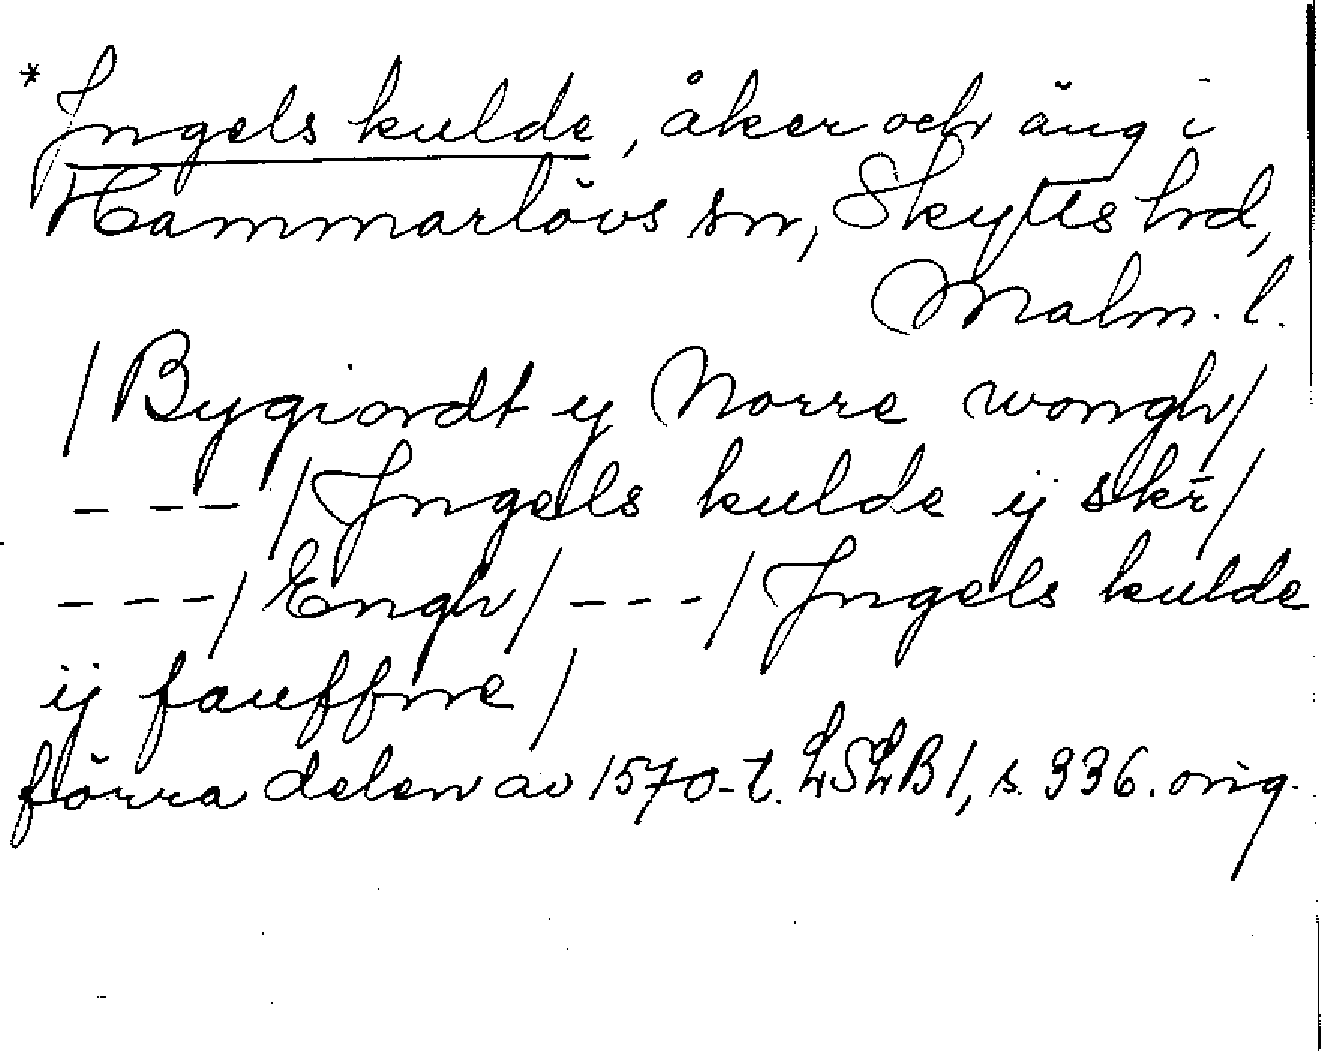 *Jngels kulde, åker och äng i
Hammarlövs sn, Skytts hd,
Malm. l.
/Bygiordt y Norre wongh/
- - - /Jngels kulde ij skr̄/
- - -/Engh/- - -/Jngels kulde
ij fauffnne/
förra delen av 1570-t. LSLB1, s. 336. orig.